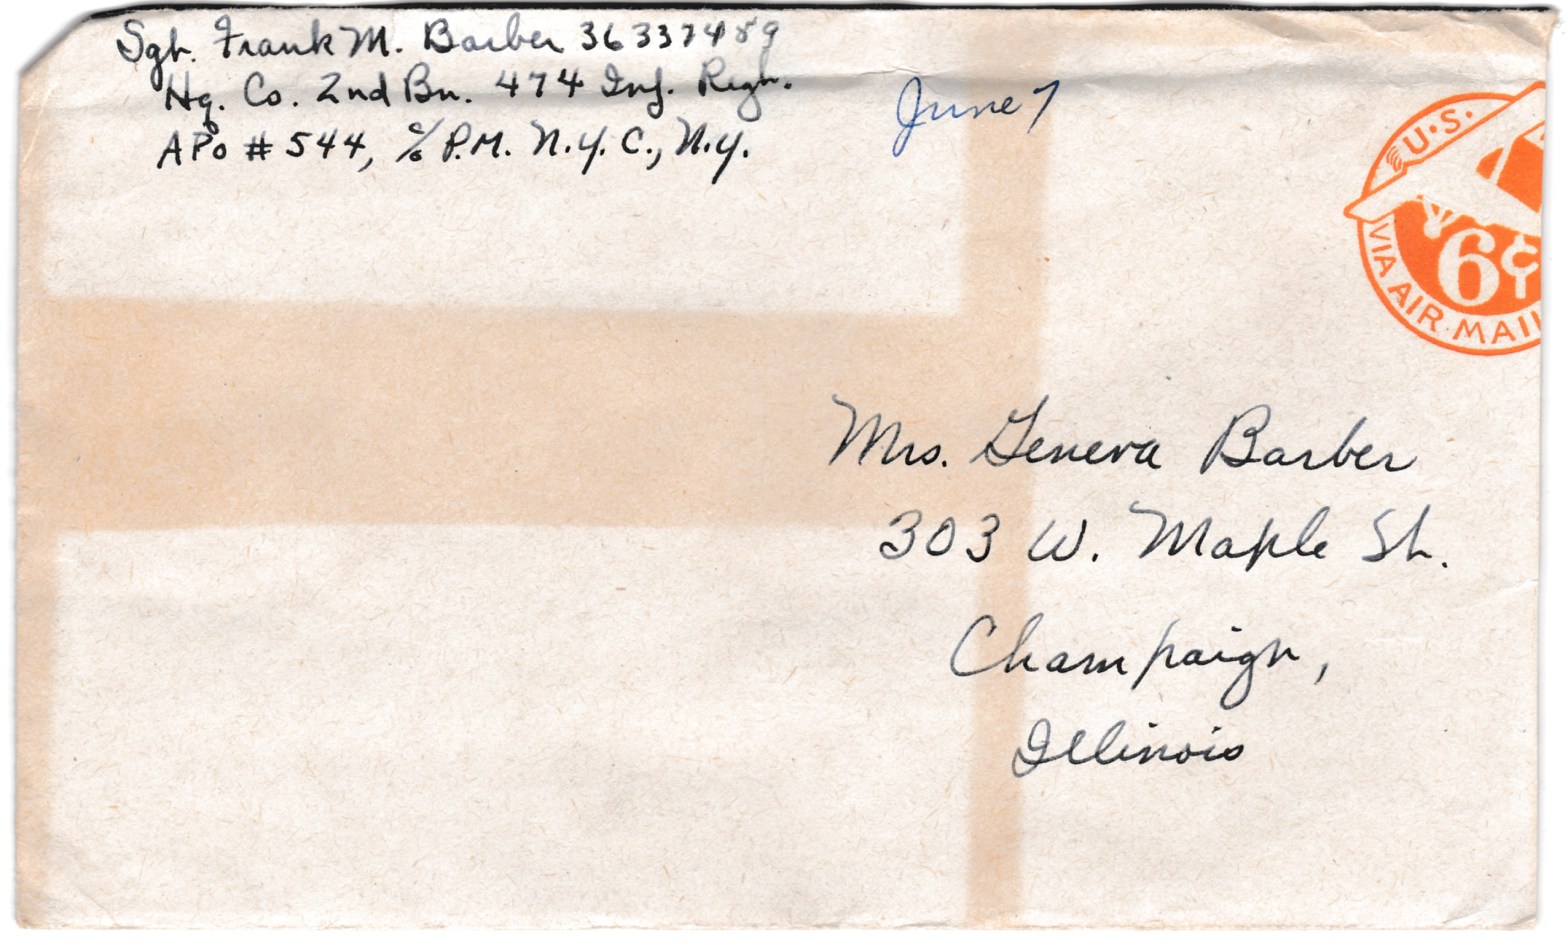 Sgt. Frank M. Barber 36337489
Hq. Co. 2nd Bn. 474 Inf. Regt.
APO # 544, c/o P.M. N.Y.C., N.Y.
June 7
U.S.
6¢
VIA AIR MAIL
Mrs. Geneva Barber
303 W. Maple St.
Champaign,
Illinois